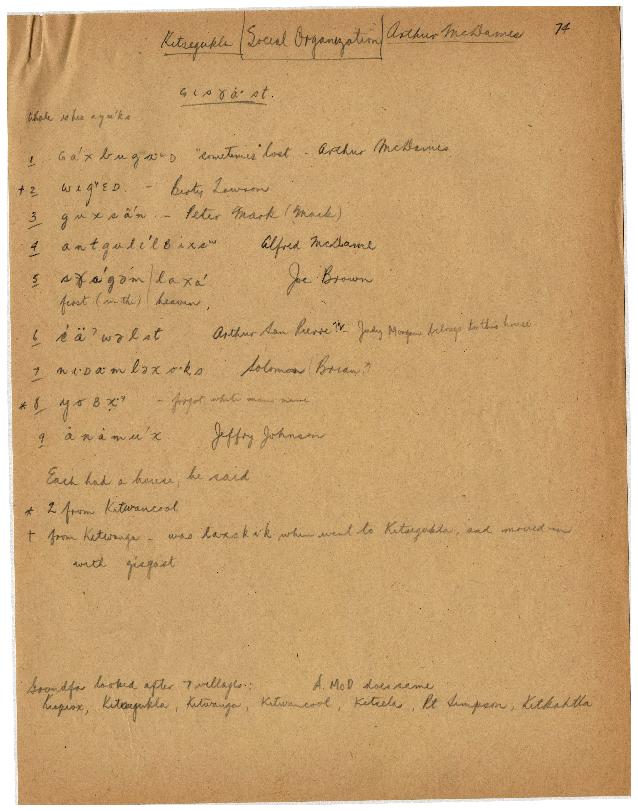 74
Kitsegukla | Social Organization | Arthur McDames
GISɣȧ·st.
1 Ga'xbugwᴅ "sometimes" lost - Arthur McDames
+ 2 wig'ED - Berty Lawson
3 guxsän - Peter Mark (Mack)
4 antguli'lBixsʷ Alfred McDame
5 sɣa'gəm | laxa' Joe Brown
first (in the) | heaven.
6 Arthur San Pierre - Judy Morgan belongs to this house
7 nɪᴅamləxoks Solomon / Brian?
* 8 yoBx̣ - forgot white man name
9 änämu'x Jeffry Johnson
Each had a house, he said
* 2 from Kitwancool
† from Kitwanga - was laxskik when went to Kitsegukla, and moved in
with gisgast
Grandfa looked after 7 villages: A. McD does same
Kispiox, Kitsegukla, Kitwanga, Kitwancool, Kitsela, Pt Simpson, Kitkahtla